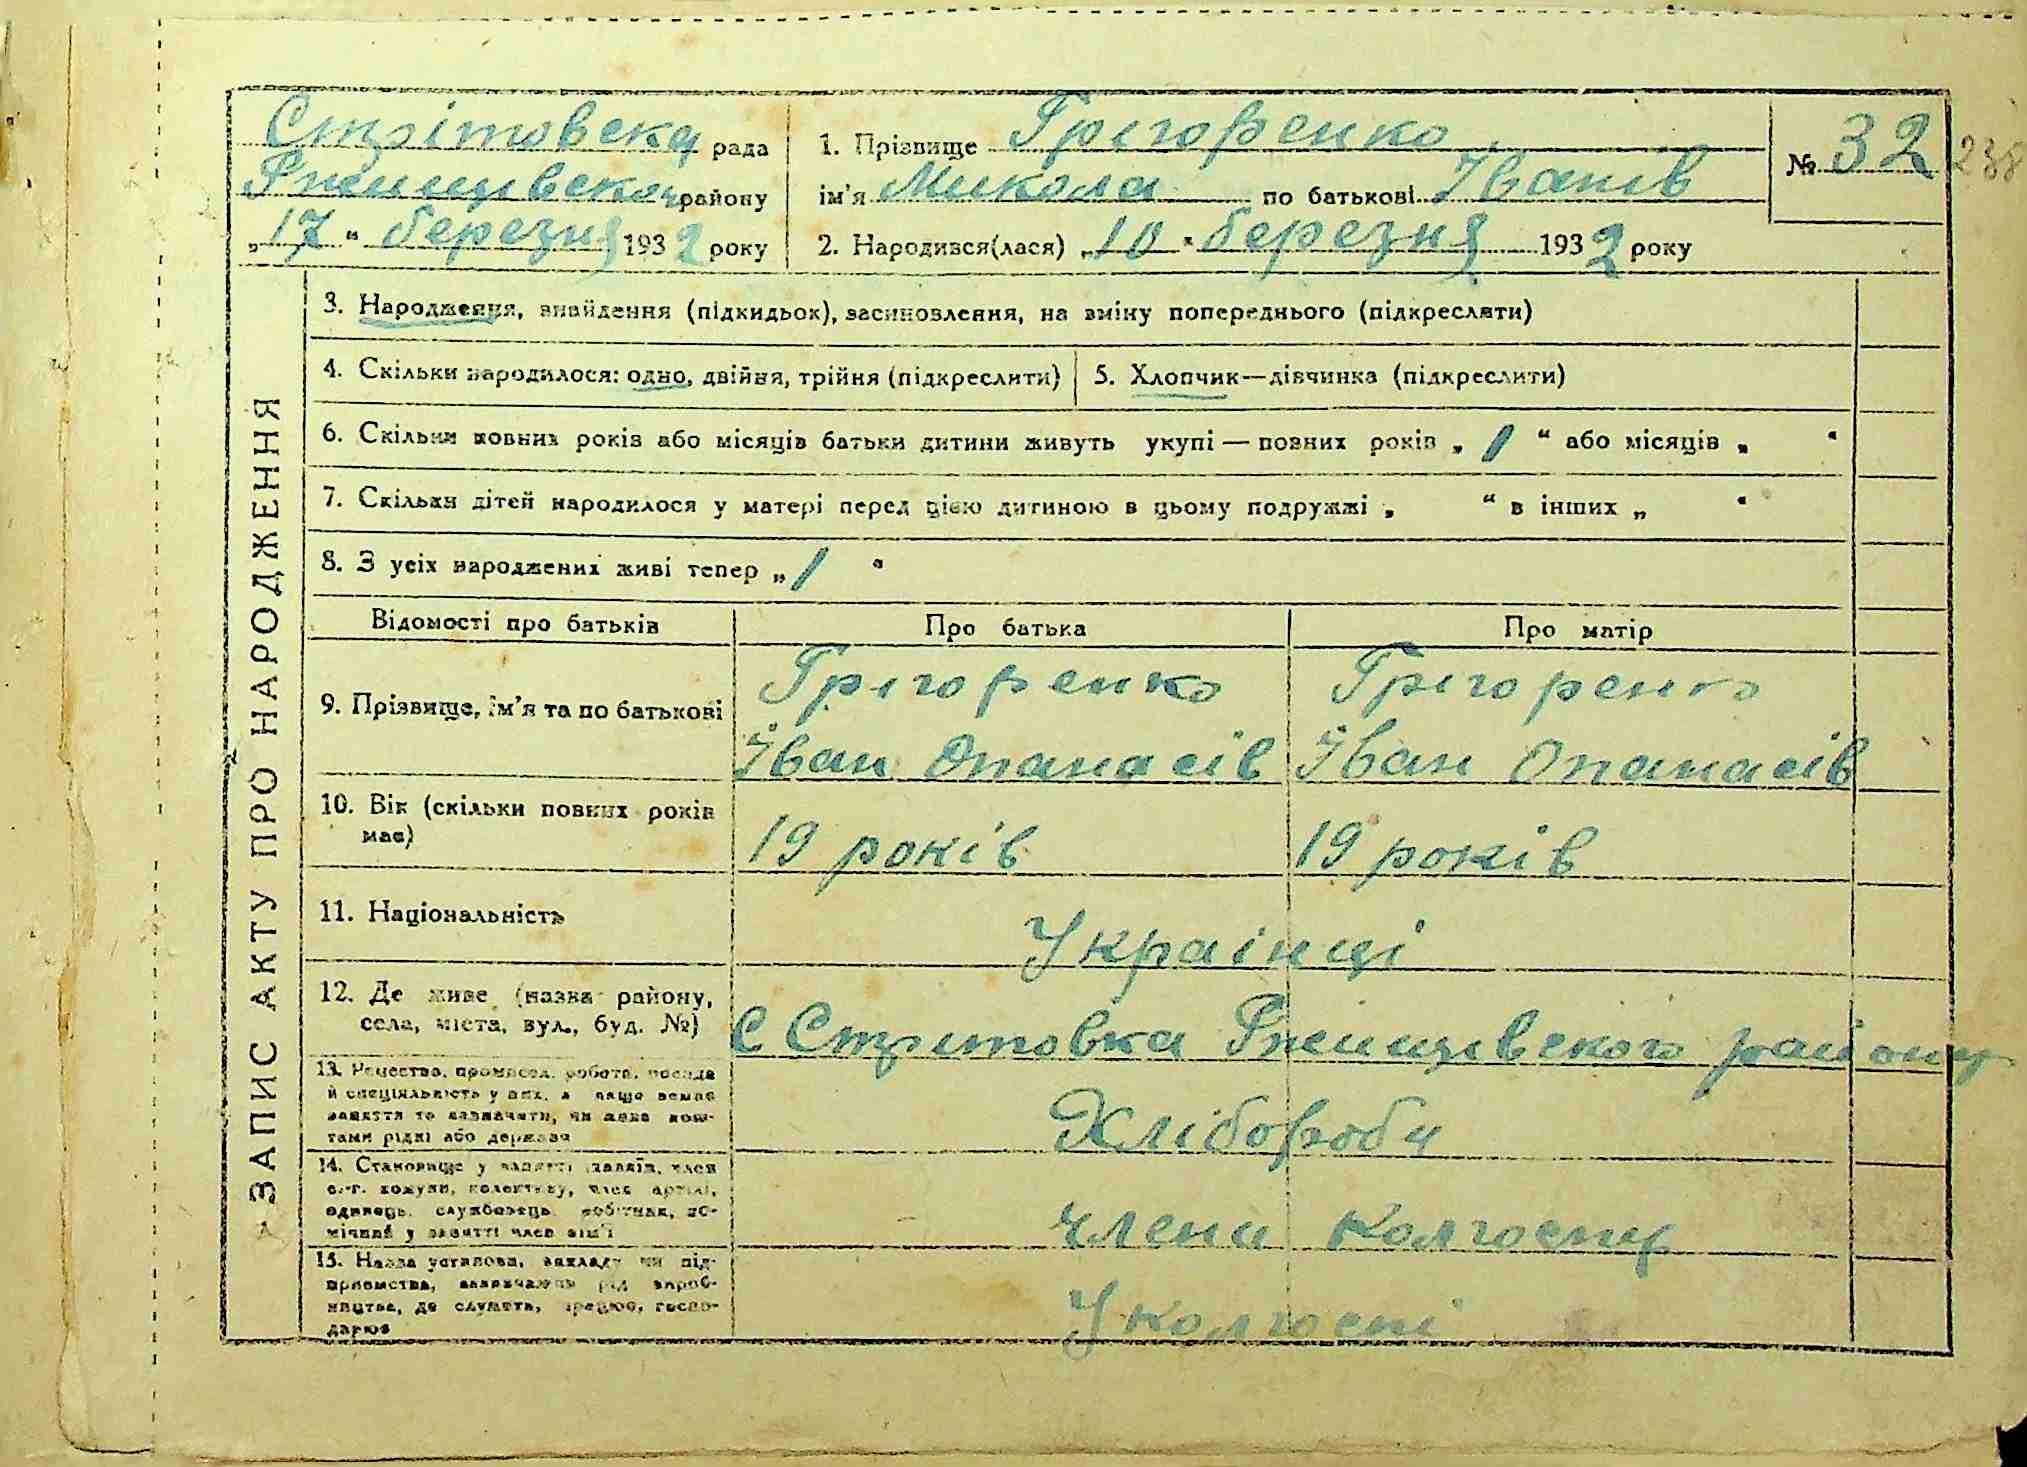 Стрітовска рада
Ржищівского району
„17“ березня 1932 року
1. Прізвище Грігоренко
ім'я Микола по батькові Іванів
2. Народився(лася) „10“ березня 1932 року
№ 32
238
ЗАПИС АКТУ ПРО НАРОДЖЕННЯ
3. Народження, знайдення (підкидьок), засиновлення, на зміну попереднього (підкреслити)
4. Скільки народилося: одно, двійня, трійня (підкреслити)
5. Хлопчик—дівчинка (підкреслити)
6. Скільки повних років або місяців батьки дитини живуть укупі — повних років „1“ або місяців „ “
7. Скільки дітей народилося у матері перед цією дитиною в цьому подружжі „ “ в інших „ “
8. З усіх народжених живі тепер „1“
Відомості про батьків Про батька Про матір
9. Прізвище, ім'я та по батькові
Грігоренко Грігоренко
Іван Опанасів Іван Опанасів
10. Вік (скільки повних років
має)
19 років 19 років
11. Національність
Українці
12. Де живе (назва району,
села, міста, вул., буд. №)
С Стрітовка Ржищівского району
13. Ремество, промисел, робота, посада
й спеціяльність у них, а якщо немає
заняття то зазначити, чи живе кош-
тами рідні або держави
Хлібороби
14. Становище у занятті
с.-г. комуни, колективу, член артілі,
одинець, службовець, робітник, по-
мічний у занятті член сім'ї
члени колгоспу
15. Назва установи, закладу чи під-
приємства, зазначаючи рід вироб-
ництва, де служить, працює, госпо-
дарює
У колгоспі